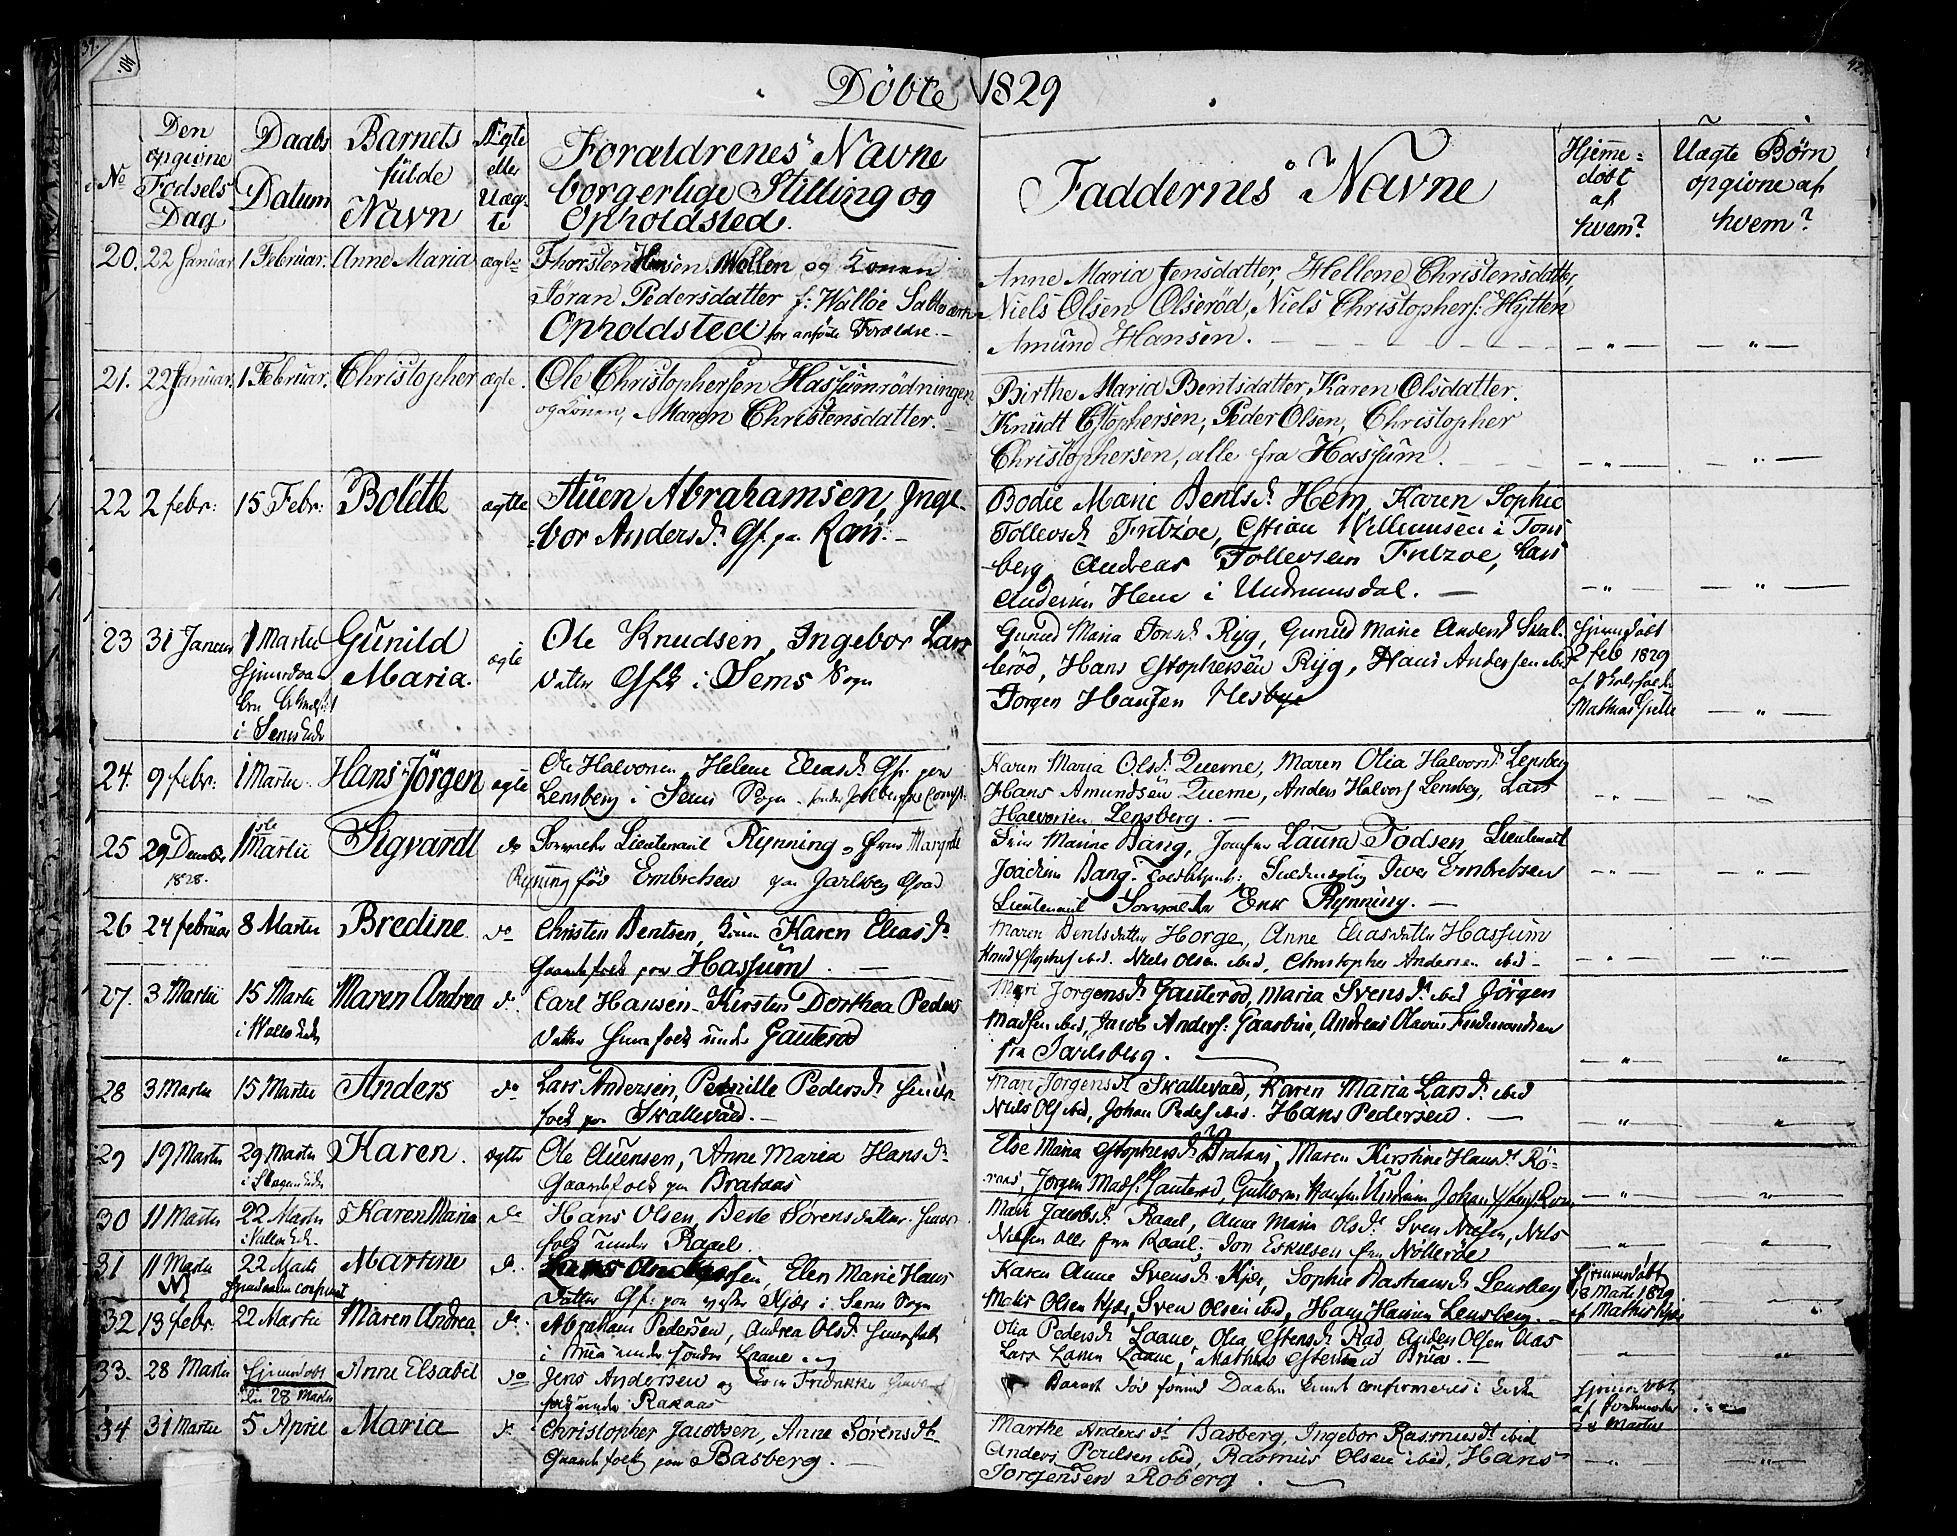 Döbte 1829
No
Den opgivne Födsels Dag
Daabs Datum
Barnets fulde Navn
Ægte eller Uægte
Forældrenes Navne borgerlige Stilling og Opholdsted.
Faddernes Navne
Hjemedöbt af hvem?
Uægte Börn opgivne af hvem?
20. 22 Januar 1 Februar. Anne Maria ægte Thorsten Hansen Wollen og Konen
Jöran Pedersdatter f: Walløe Saltværk
Opholdsted for anförte Forældre.
Anne Maria Jensdatter, Hellene Christensdatter,
Niels Olsen Olseröd, Niels Christophers: Hytten
Amund Hansen.
21. 22 Januar. 1 Februar. Christopher ægte. Ole Christophersen Hassumrödningen
og Konen, Maren Christensdatter.
Birthe Maria Bentsdatter, Karen Olsdatter.
Knudt Cstophersen, Peder Olsen, Christopher
Christophersen, alle fra Hassum.
22 2 febr: 15 Febr: Bolette ægte Auen Abrahamsen, Inge-
bor Andersd. Gf. paa Ram.
Bodie Marie Bentsd. Hem, Karen Sophie
Tollevsd. Fritzøe, Cstian Willumsen i Tons
berg, Andreas Tollevsen Fritzoe, Lars
Andersen Hem i Undrumsdal.
23 31 Januar 1 Martii Gunild Maria. ægte Ole Knudsen, Ingebor Lars
datter Gfolk i Sems Sogn
i Sems Kirke
Gunild Maria Jonsd. Ryg, Gunild Marie Andersd. Skal-
leröd, Hans Cstophersen Ryg, Hans Andersen ibid
Jorgen Hansen Hesbye
Hjemmedöbt
2 feb 1829
af
Mathias
24. 9 febr: 1 Martii. Hans Jörgen ægte Ole Halvorsen, Helene Eliasd. Gf. paa
Lensberg i Sems Sogn
Karen Maria Olsd. Queme, Maren Olia Halvorsd. Lensberg
Hans Amundsen Queme, Anders Halvors. Lensberg, Lars
Halvorsen Lensberg.
25 29 December 1828. 1ste Martii Sigvardt do Lieutenant Rynning Margrete
Rynning föd Embretsen paa Jarlsberg Gaard
Marine Bang, Jomfru Laura Todsen, Lieutenant
Joachim Bang. Iver Embretsen
Lieutenant Rynning.
26 24 februar 8 Martii Bredine do Christen Bentsen, Karen Eliasd.
Gaardsfolk paa Hassum.
Maren Bentsdatter Horge, Anne Eliasdatter Hassum
Niels Olsen ibid, Christopher Andersen ibid
27. 3 Martii 15 Martii i Wallø Kirke Maren Andrea do Carl Hansen, Kirsten Dorthea Peders
datter Huusfolk under Gauteröd
Mari Jorgensd. Gauteröd, Maria Svensd. ibid Jörgen
Madsen ibid, Jacob Anders: Andreas Olaves Ferdinandsen
fra Jarlsberg.
28 3 Martii 15 Martii Anders do Lars Andersen, Pernille Pedersd. Huus
folk paa Skallevald.
Mari Jorgensd. Skallevald, Karen Maria Larsd. ibid
Niels Ols. ibid, Johan Peders. ibid. Hans Pedersen.
29 19 Martii 29 Martii Karen. ægte Ole Auensen, Anne Maria Hansd.
Gaardsfolk paa Brataas
Else Maria Cstophersd. Brataas, Maren Kirstine Hansd. Rö-
raas, Jorgen Mads. Gauteröd, Guttorm
30 11 Martii 22 Martii i Wallø K. Karen Maria do Hans Olsen, Berte Sörensdatter. Huus
folk under Rael.
Mari Jacobsd. Rael, Anne Maria Olsd. Sven Nielsen, Niels
Nielsen alle fra Raael. Jon Eskelsen fra Nötteröe
31 11 Martii 22 Martii Martine do Lars Andersen, Elen Marie Hans
datter Gf. paa vestre Kjær i Sems Sogn
Karen Anne Svensd. Kjær, Sophie Bastiansd. Lensberg
Mathis Olsen Kjær, Sven Olsen ibid, Hans Hansen Lensberg.
Hjemmedöbt
18 Martii 1829
af Mathis Kjær
32 13 febr. 22 Martii Maren Andrea do Abraham Pedersen, Andrea Olsd. Huusfolk
i Brua under söndre Laane.
Olia Pedersd. Laane, Olia Cstensd. Rad Anders Olsen Aas
Lars Larsen Laane, Mathias Cstensen Brua.
33. 28 Martii Hjemmedöbt den 28 Martii Anne Elsabet do Jens Andersen og Kone Fridrikke
folk under Rakaas
Barnet döde forinden Daaben kunde confirmeres i Kirken
Hjemmedöbt
af Jordmoder
28 Martii
34 31 Martii 5 April Maria do Christopher Jacobsen, Anne Sörensd.
Gaardsfolk paa Basberg.
Marthe Andersd. Basberg, Ingebor Rasmusd. ibid
Anders Poulsen ibid, Rasmus Olsen ibid, Hans
Jorgensen Roberg.